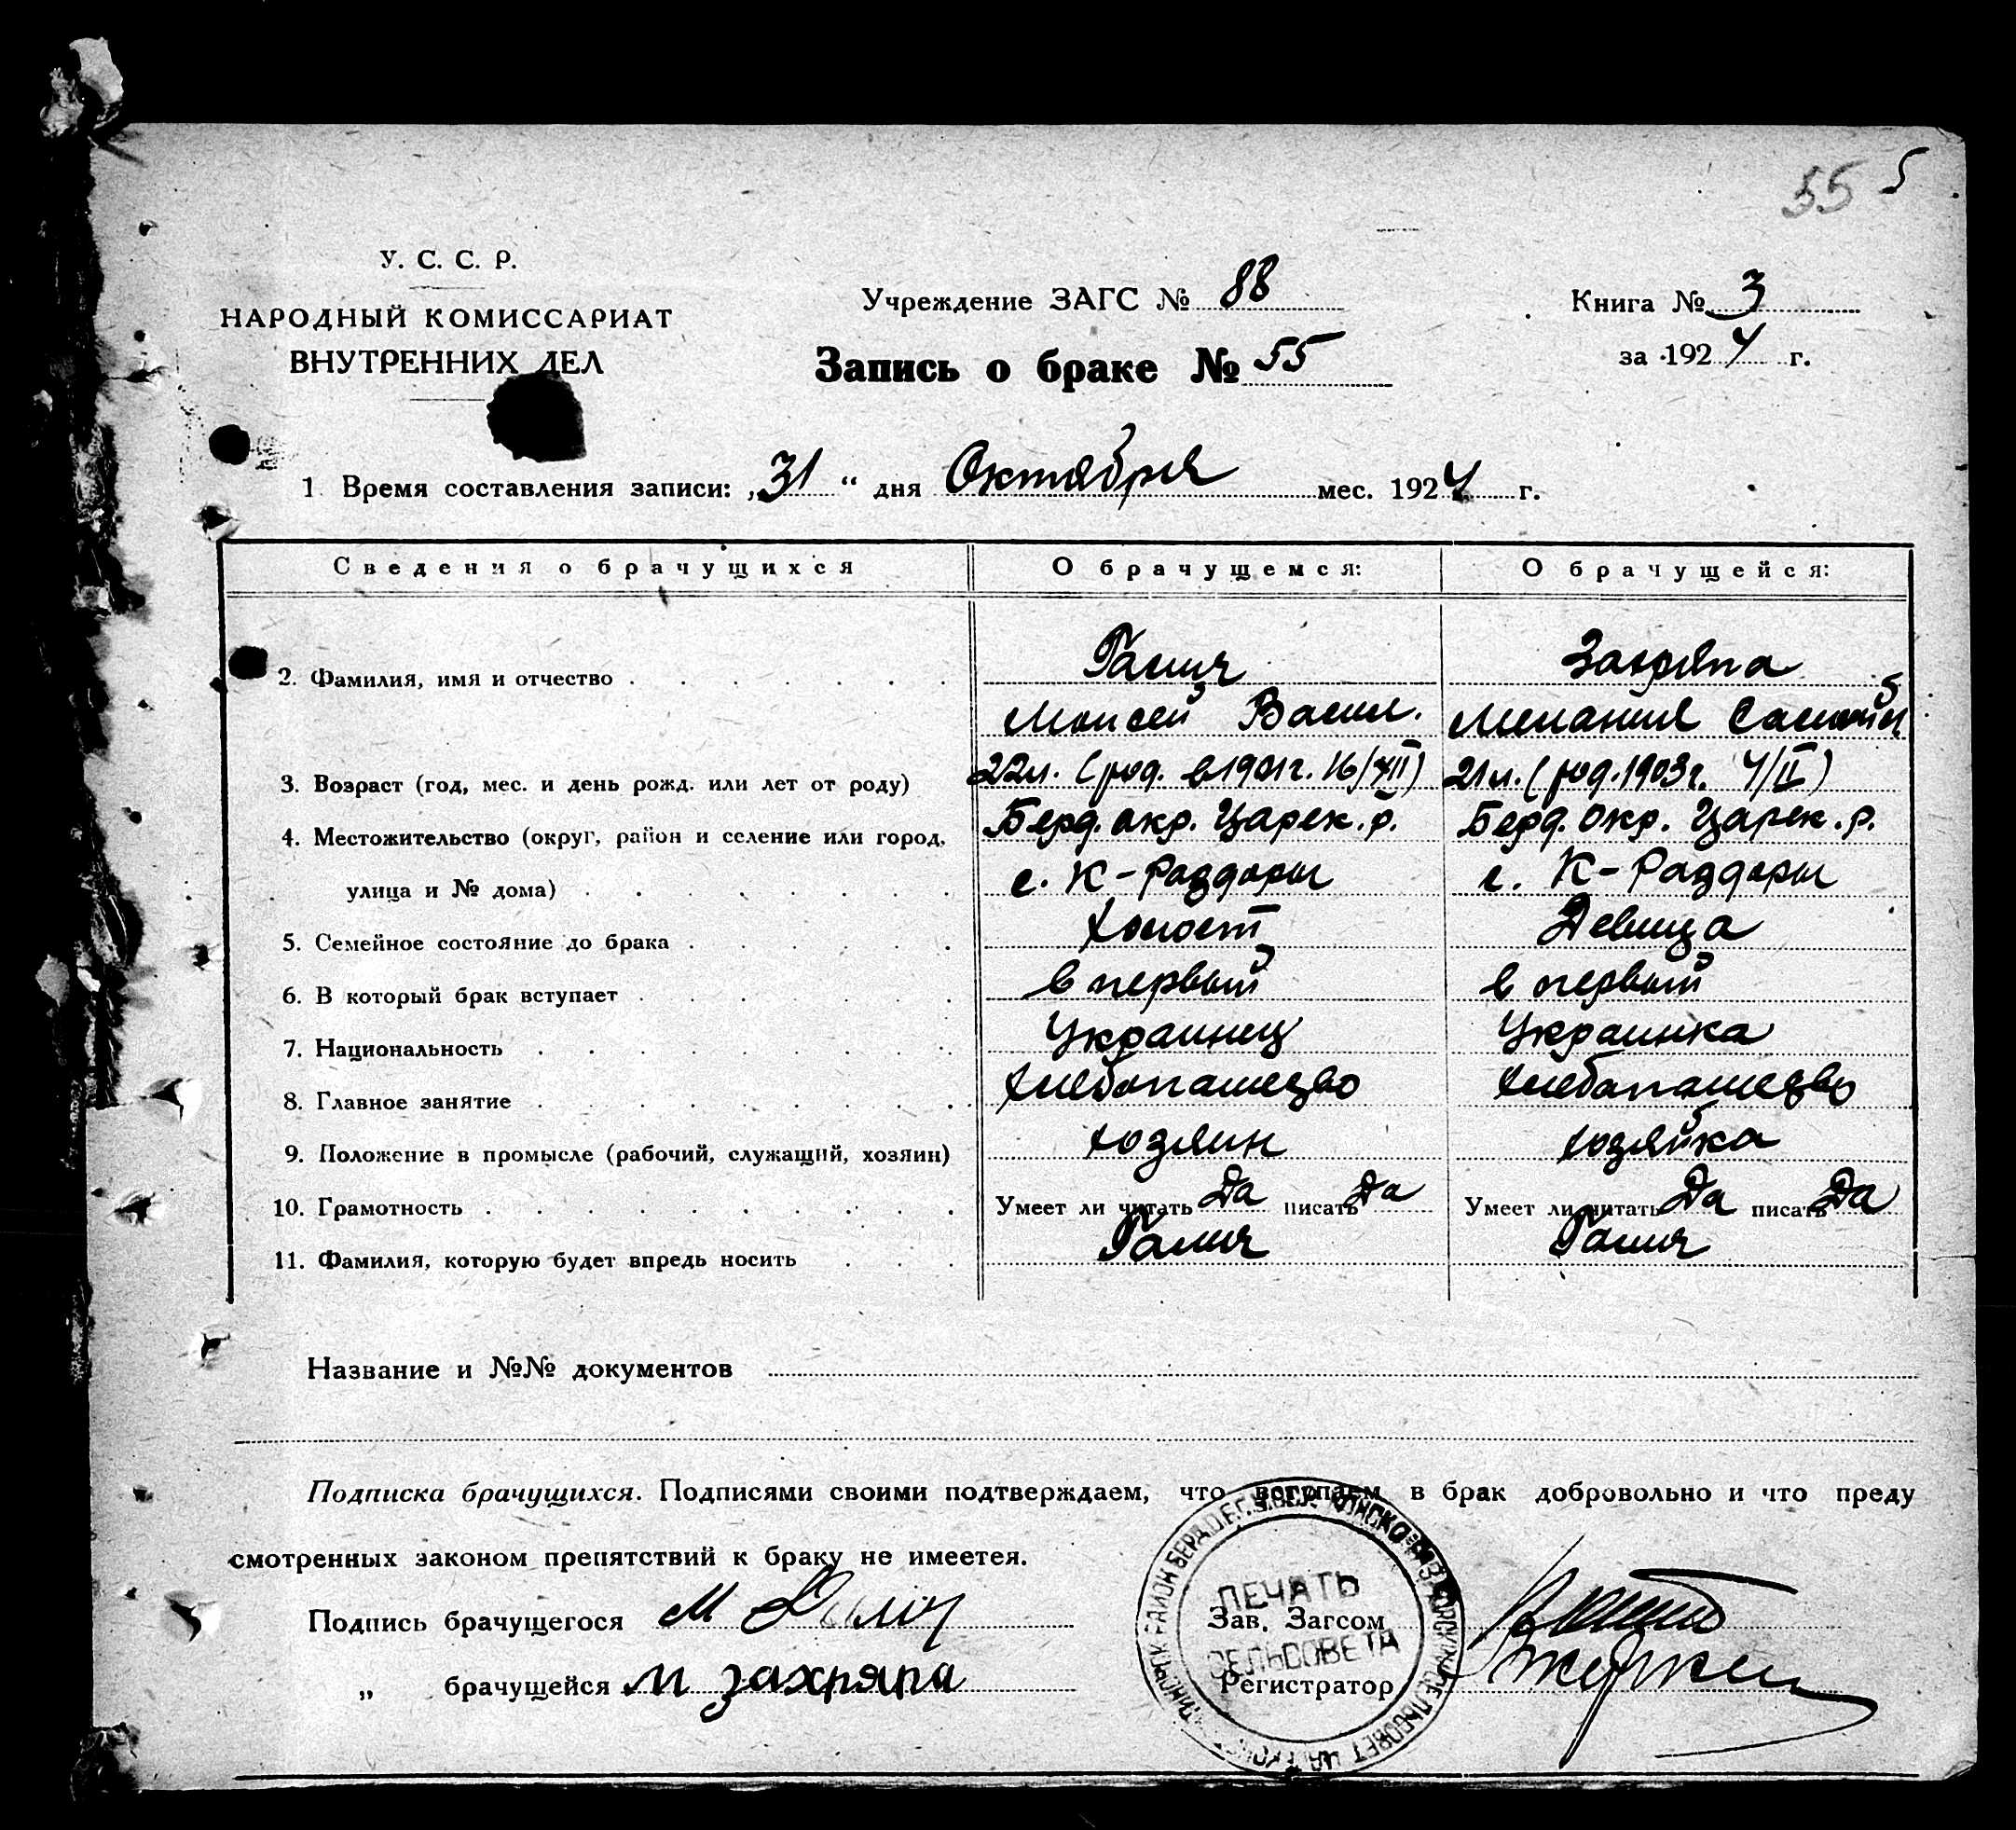 55 5
У. С. С. Р.
НАРОДНЫЙ КОМИССАРИАТ
ВНУТРЕННИХ ДЕЛ
Учреждение ЗАГС № 88
Запись о браке № 55
Книга № 3
за 1924 г.
1. Время составления записи: „31“ дня Октября мес. 1924 г.
Сведения о брачущихся О брачущемся: О брачущейся:
2. Фамилия, имя и отчество Галич Захряпа
Моисей Васил. Мелания
3. Возраст (год, мес. и день рожд. или лет от роду) 22л. (род. в 1901г. 16/XII) 21л. (род. 1903г. 4/II)
4. Местожительство (округ, район и селение или город, Берд. окр. Царек. р. Берд. Окр. Царек. р.
улица и № дома) с. К-Раздоры с. К-Раздоры
5. Семейное состояние до брака Холост Девица
6. В который брак вступает в первый в первый
7. Национальность Украинец Украинка
8. Главное занятие Хлебопашедво Хлебопашедво
9. Положение в промысле (рабочий, служащий, хозяин) хозяин хозяйка
10. Грамотность Умеет ли читать Да писать Да Умеет ли читать Да писать Да
11. Фамилия, которую будет впредь носить Галич Галич
Название и №№ документов
Подписка брачущихся. Подписями своими подтверждаем, что вступаем в брак добровольно и что преду
смотренных законом препятствий к браку не имеетея.
Подпись брачущегося М Галич Зав. Загсом
„ брачущейся М захряпа Регистратор
ПЕЧАТЬ
СЕЛЬСОВЕТА